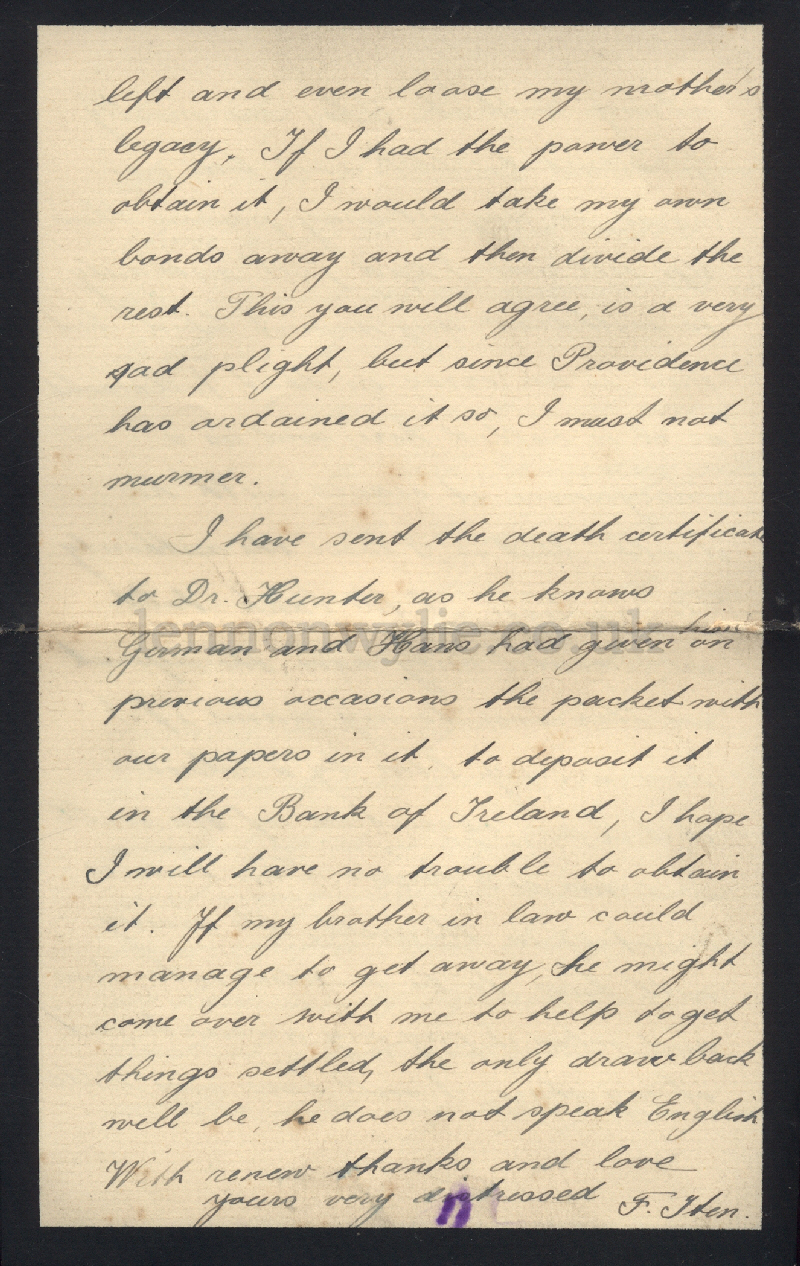 left and even loose my mother's
legacy. If I had the power to
obtain it, I would take my own
bonds away and then divide the
rest. This you will agree, is a very
sad plight, but since Providence
has ordained it so, I must not
murmer.
I have sent the death certificate
to Dr. Hunter, as he knows
lennonwylie.co.uk
German and Hans had given him on
previous occasions the packet with
our papers in it, to deposit it
in the Bank of Ireland, I hope
I will have no trouble to obtain
it. If my brother in law could
manage to get away, he might
come over with me to help to get
things settled, the only drawback
will be, he does not speak English
With renew thanks and love
yours very distressed F. Iten.